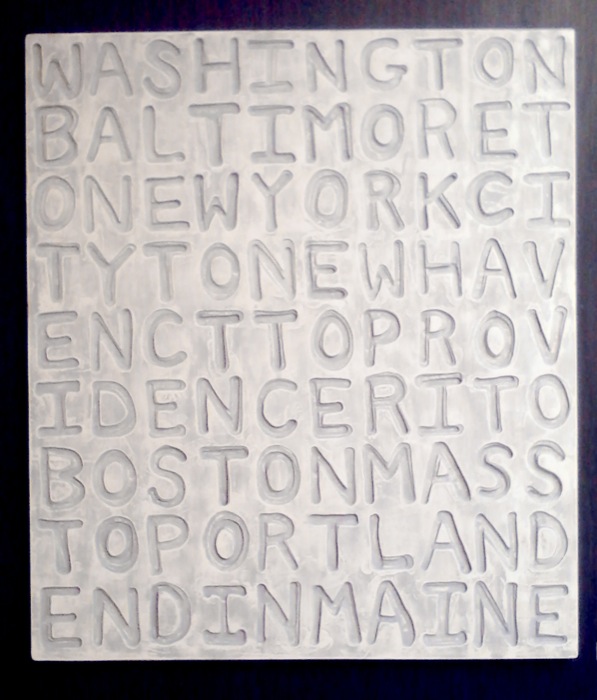 WASHINGTON
BALTIMORET
ONEWYORKCI
TYTONEWHAV
ENCTTOPROV
IDENCERITO
BOSTONMASS
TOPORTLAND
ENDINMAINE